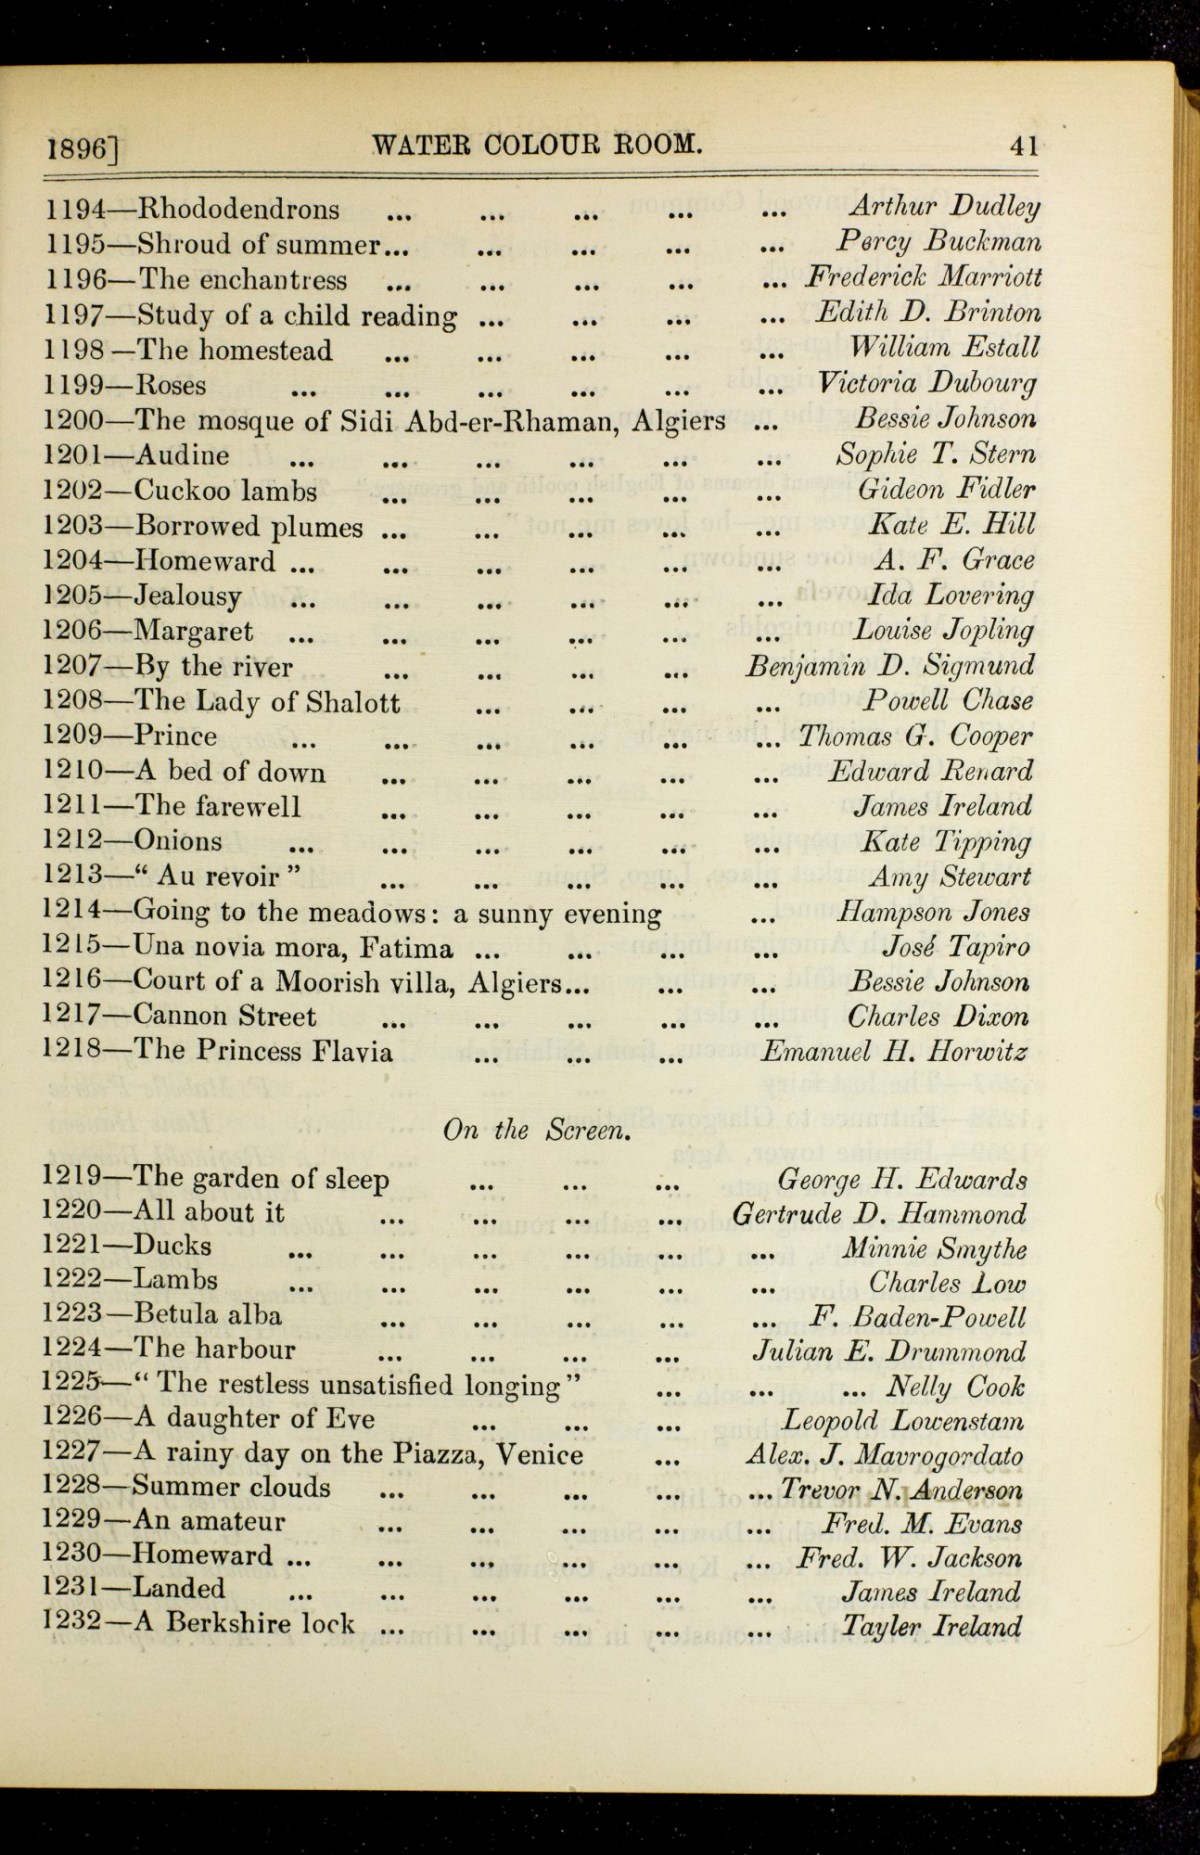 1896] WATER COLOUR ROOM. 41
1194—Rhododendrons ... ... ... ... ... Arthur Dudley
1195—Shroud of summer... ... ... ... ... Percy Buckman
1196—The enchantress ... ... ... ... ... Frederick Marriott
1197—Study of a child reading ... ... ... ... Edith D. Brinton
1198—The homestead ... ... ... ... ... William Estall
1199—Roses ... ... ... ... ... ... Victoria Dubourg
1200—The mosque of Sidi Abd-er-Rhaman, Algiers ... Bessie Johnson
1201—Audine ... ... ... ... ... ... Sophie T. Stern
1202—Cuckoo lambs ... ... ... ... ... Gideon Fidler
1203—Borrowed plumes ... ... ... ... ... Kate E. Hill
1204—Homeward ... ... ... ... ... ... A. F. Grace
1205—Jealousy ... ... ... ... ... ... Ida Lovering
1206—Margaret ... ... ... ... ... ... Louise Jopling
1207—By the river ... ... ... ... Benjamin D. Sigmund
1208—The Lady of Shalott ... ... ... ... Powell Chase
1209—Prince ... ... ... ... ... ... Thomas G. Cooper
1210—A bed of down ... ... ... ... ... Edward Renard
1211—The farewell ... ... ... ... ... James Ireland
1212—Onions ... ... ... ... ... ... Kate Tipping
1213—“ Au revoir ” ... ... ... ... ... Amy Stewart
1214—Going to the meadows: a sunny evening ... Hampson Jones
1215—Una novia mora, Fatima ... ... ... ... José Tapiro
1216—Court of a Moorish villa, Algiers... ... ... Bessie Johnson
1217—Cannon Street ... ... ... ... ... Charles Dixon
1218—The Princess Flavia ... ... ... Emanuel H. Horwitz
On the Screen.
1219—The garden of sleep ... ... ... George H. Edwards
1220—All about it ... ... ... ... Gertrude D. Hammond
1221—Ducks ... ... ... ... ... ... Minnie Smythe
1222—Lambs ... ... ... ... ... ... Charles Low
1223—Betula alba ... ... ... ... ... F. Baden-Powell
1224—The harbour ... ... ... ... Julian E. Drummond
1225—“ The restless unsatisfied longing” ... ... ... Nelly Cook
1226—A daughter of Eve ... ... ... Leopold Lowenstam
1227—A rainy day on the Piazza, Venice ... Alex. J. Mavrogordato
1228—Summer clouds ... ... ... ... ... Trevor N. Anderson
1229—An amateur ... ... ... ... ... Fred. M. Evans
1230—Homeward ... ... ... ... ... ... Fred. W. Jackson
1231—Landed ... ... ... ... ... ... James Ireland
1232—A Berkshire lock ... ... ... ... ... Tayler Ireland